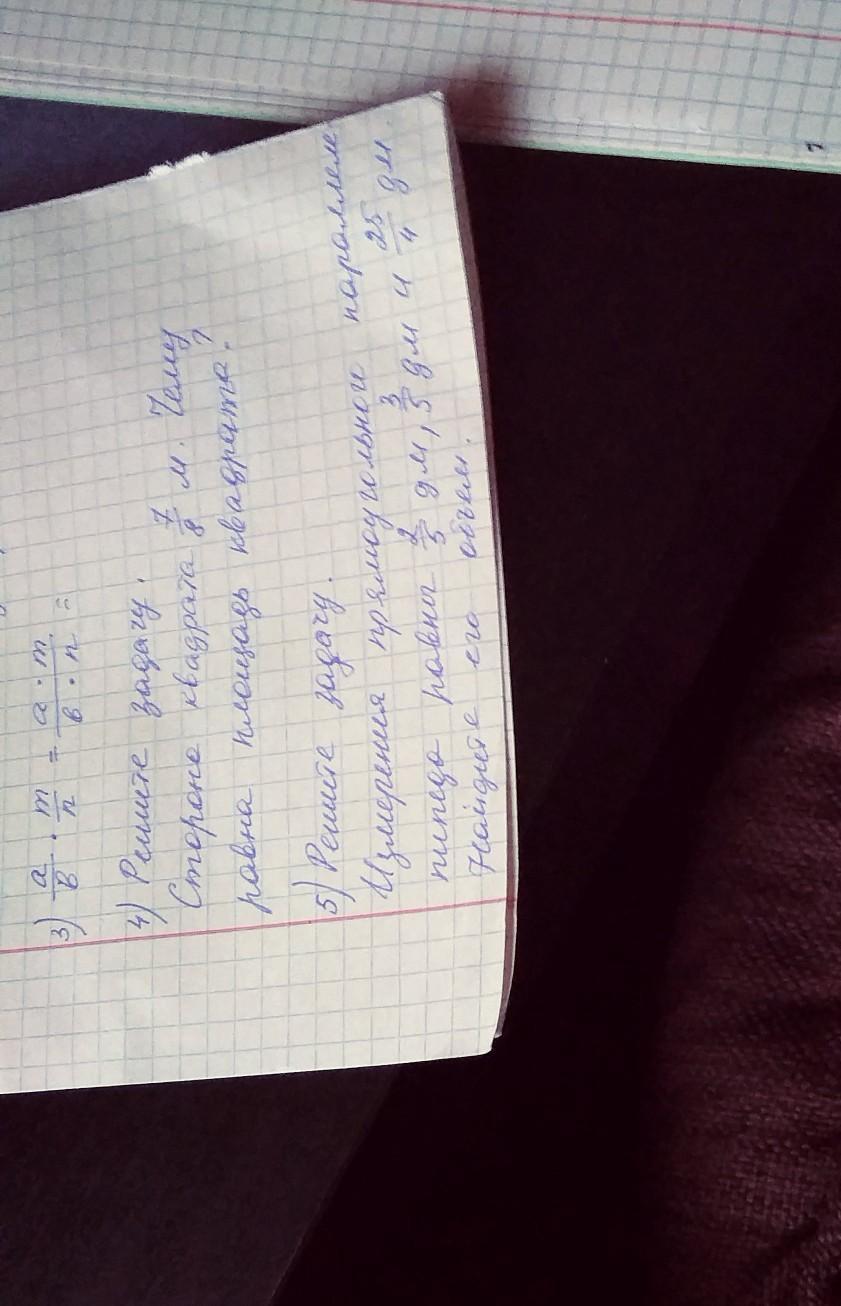 3) a/в · m/n = a · m/в · n =
4) Решите задачу.
Сторона квадрата 7/8 м. Чему
равна площадь квадрата?
5) Решите задачу.
Измерения прямоугольного параллеле
пипеда равны 2/5 дм, 3/5 дм и 25/4 дм.
Найдите его объем.